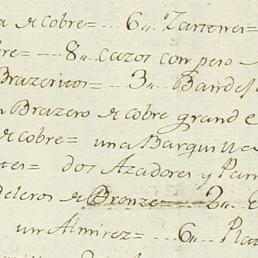 a de cobre= ... 6,, Zartenes=
bre= ... 8,, cazos con peso
Brazeritos= ... 3,, Bandej
n Brazero de cobre grande
de cobre= una Barquilla
tes= dos Azadores y Parr
deleros de Bronze= ... 2,, E
un Almirez= ... 6,, Plat